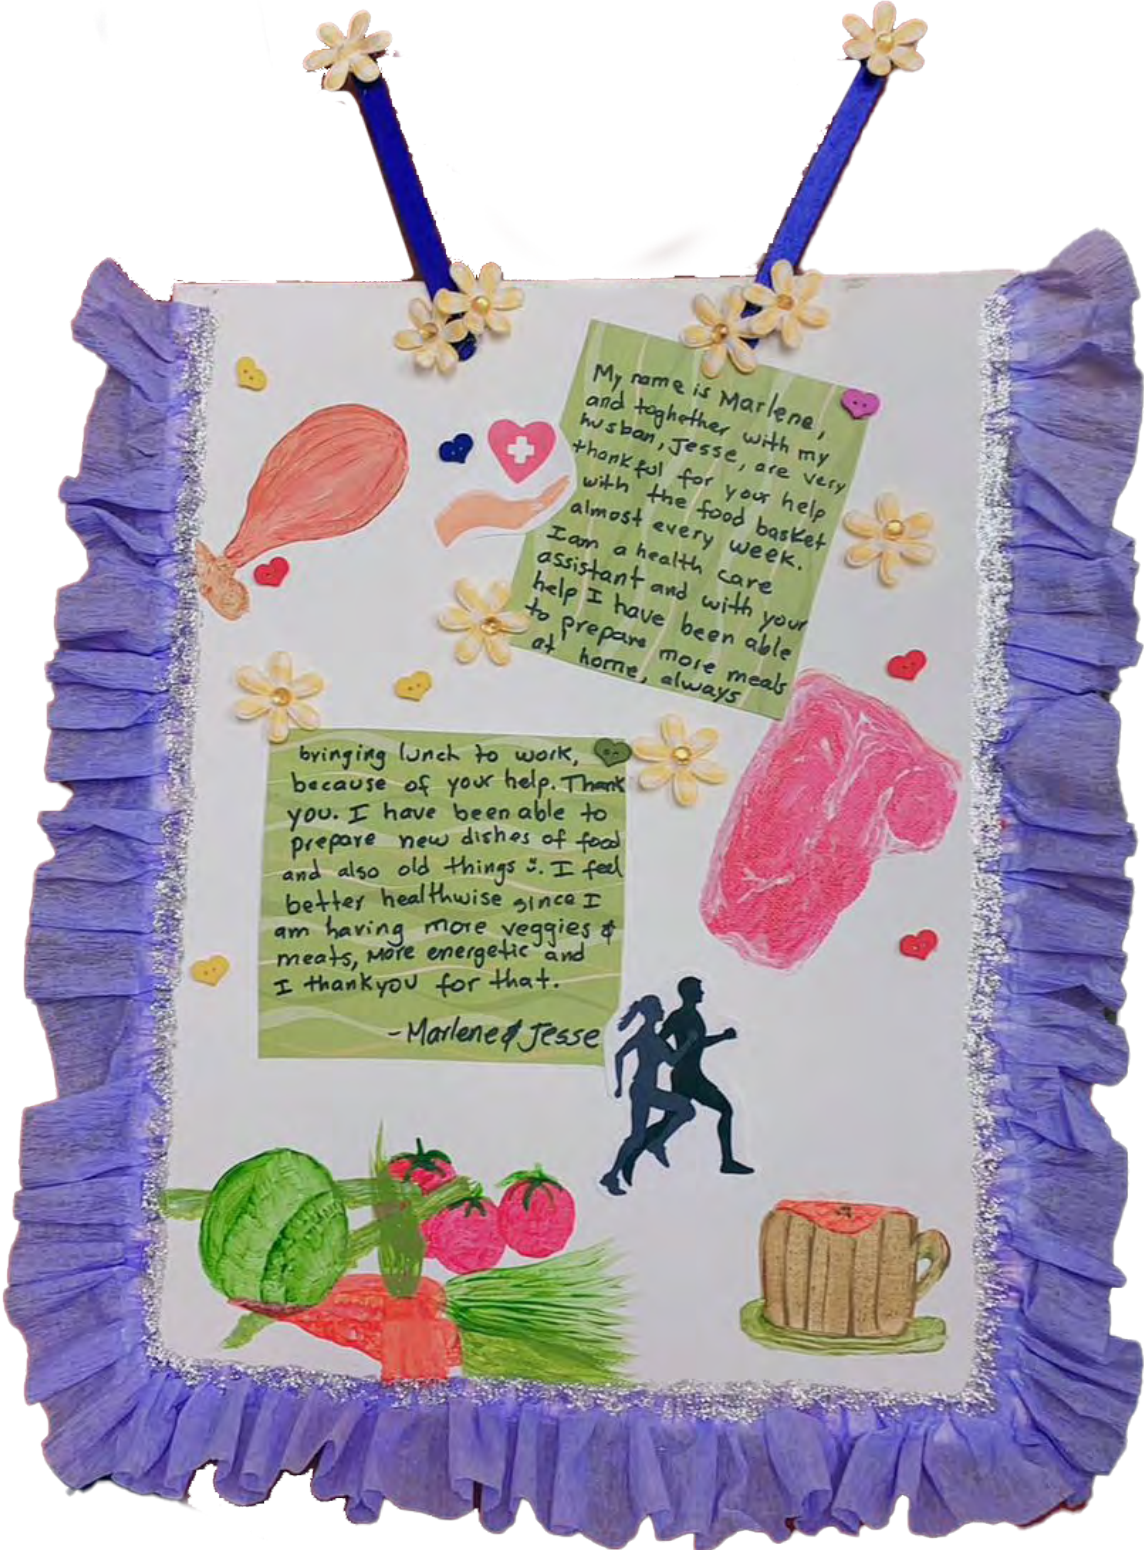 My name is Marlene,
and toghether with my
husban, Jesse, are very
thankful for your help
with the food basket
almost every week.
I am a health care
assistant and with your
help I have been able
to prepare more meals
at home, always
bringing lunch to work,
because of your help. Thank
you. I have been able to
prepare new dishes of food
and also old things ü. I feel
better healthwise since I
am having more veggies &
meats, more energetic and
I thankyou for that.
-Marlene & Jesse